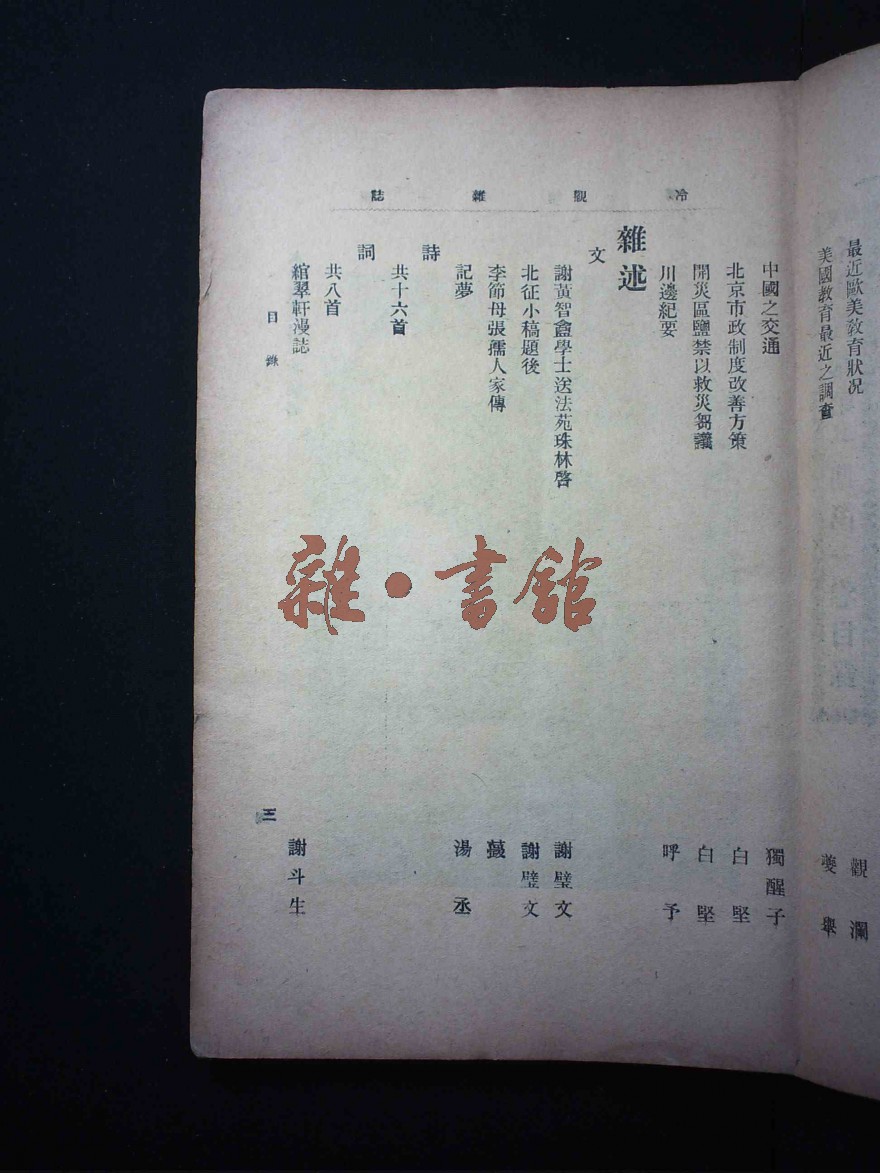 最近歐美教育狀况 觀瀾
美國教育最近之調查 夔舉
冷觀雜誌
中國之交通 獨醒子
北京市政制度改善方策 白堅
開災區鹽禁以救災芻議 白堅
川邊紀要 呼予
雜述
文
謝黃智盦學士送法苑珠林啓 謝璧文
北征小稿題後 謝璧文
李節母張孺人家傳
記夢 湯丞
詩
共十六首
詞
共八首
綰翠軒漫誌 謝斗生
目錄
三
雜·書館